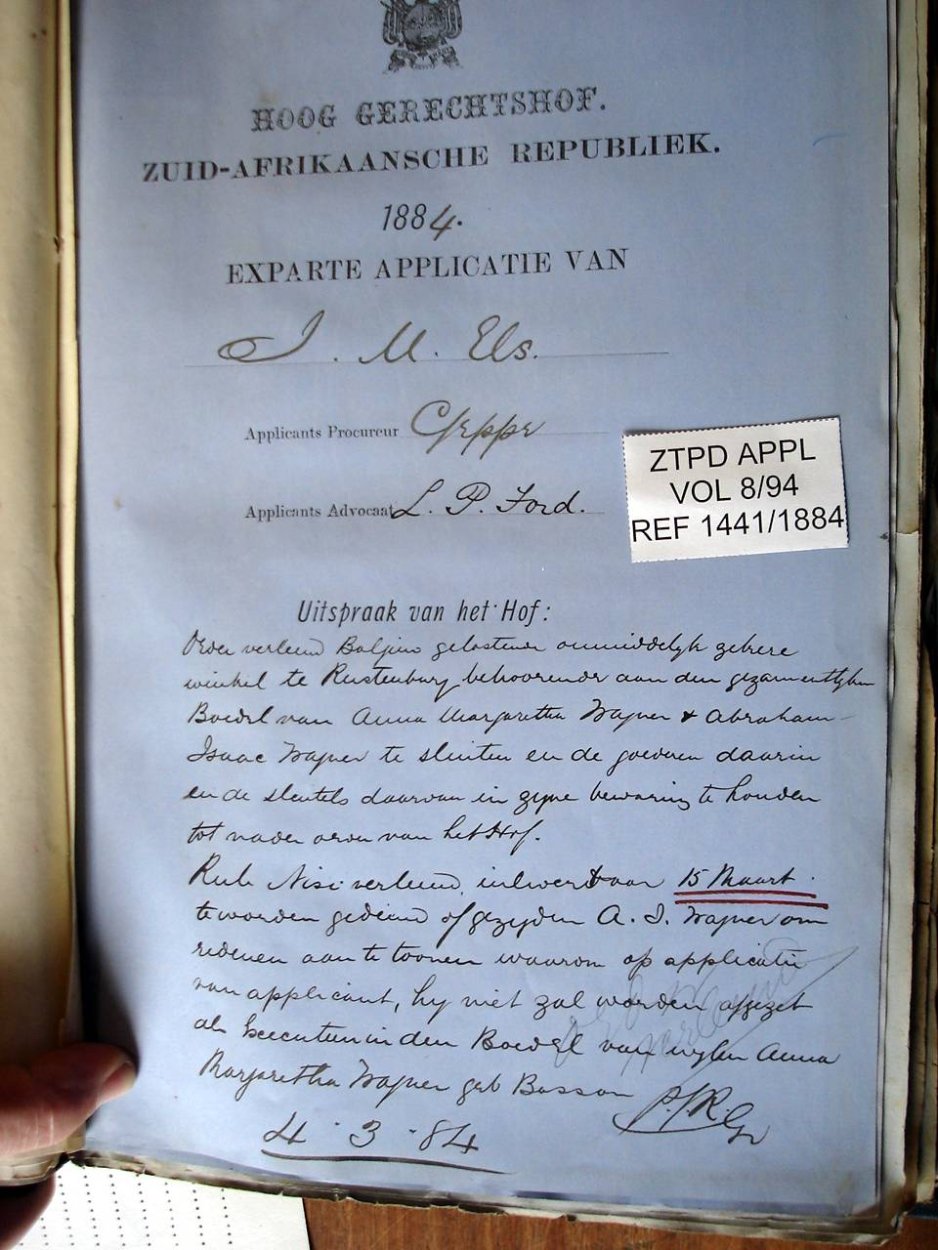 HOOG GERECHTSHOF.
ZUID-AFRIKAANSCHE REPUBLIEK.
1884.
EXPARTE APPLICATIE VAN
J. M. Els.
Applicants Procureur
Applicants Advocaat L. P. Ford.
ZTPD APPL
VOL 8/94
REF 1441/1884
Uitspraak van het Hof:
Order verleend Baljuw gelastende onmiddelyk zekere
winkel te Rustenburg behoorende aan den gezamentlyken
Boedel van Anna Margaretha Wagner & Abraham
Isaac Wagner te sluiten en de goederen daarin
en de sleutels daarvan in zyne bewaring te houden
tot nader order van het Hof.
Rule Nisi verleend, 15 Maart.
te worden gediend of gezyden A. I. Wagner om
redenen aan te toonen waarom op applicatie
van applicant, hy niet zal worden afgezet
als Executeur in den Boedel van wylen Anna
Margaretha Wagner geb Basson
4.3.84